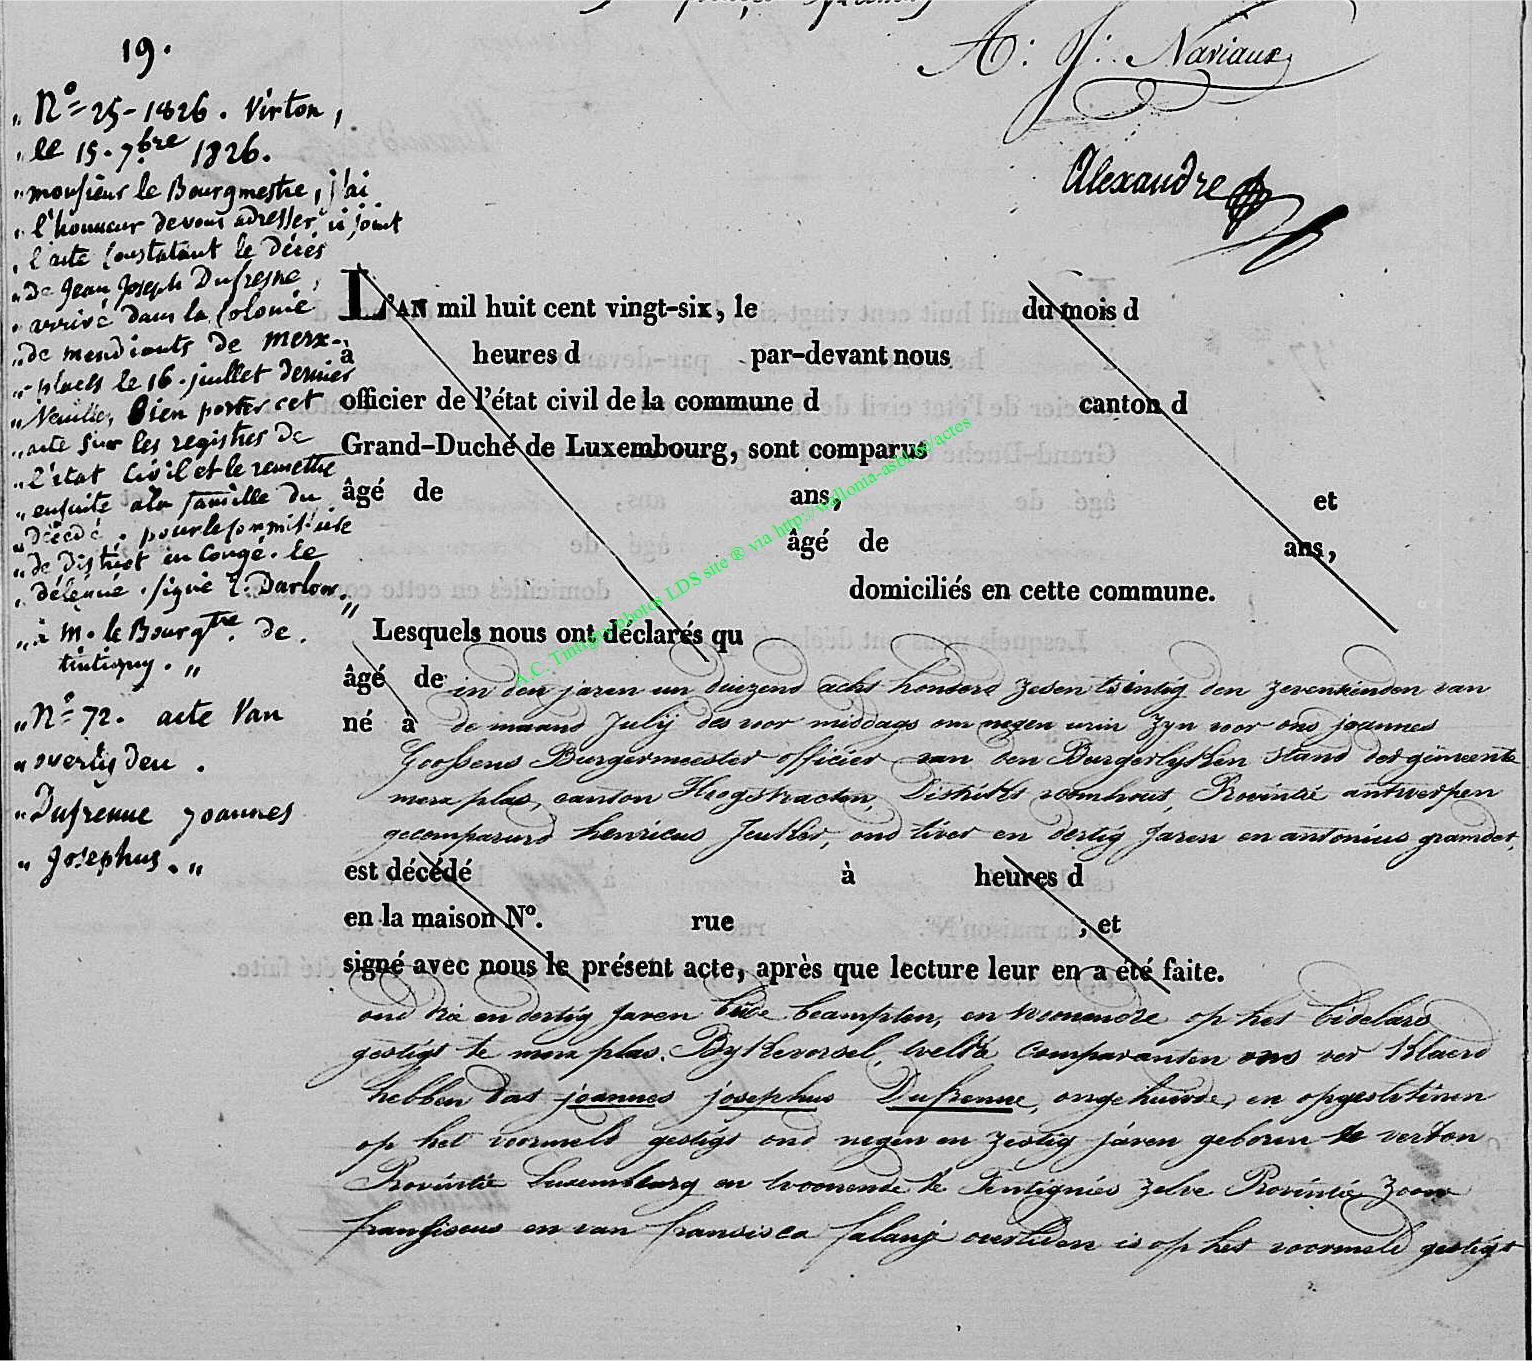 A: J: Naviaux
Alexandre
19.
„ Nº 25 - 1826. Virton,
„ le 15. 7.bre 1826.
„ monsieur le Bourgmestre, j'ai
„ l'honneur de vous adresser ci joint
„ l'acte Constatant le Décès
„ de Jean Joseph Dufresne,
„ arrivé dans la Colonie
„ de mendiants de Merx-
„ -plaels le 16. juillet dernier
„ Veuillez Bien porter cet
„ acte sur les registres de
„ l'état Civil et le remettre
„ ensuite a la famille du
„ décédé. pour le
„ de District en Congé. le
„ délégué. signé
„ à m. le Bourgtre. de.
tintigny. „
„ Nº 72. acte Van
„ overlijden.
„ Dufrenne joannes
„ Josephus. „
L'AN mil huit cent vingt-six, le du mois d
à heures d par-devant nous
officier de l'état civil de la commune d canton d
Grand-Duché de Luxembourg, sont comparus
âgé de ans, et
âgé de ans,
domiciliés en cette commune.
Lesquels nous ont déclarés qu
âgé de
in den jaren un duizend acht honderd zesentwintig den zeventienden van
né à
de maand July des voor middags om negen uren zyn voor ons joannes
Goossens Burgermeester officier van den Burgerlyken stand der gemeente
merxplas, canton Hoogstraeten, Distrikts Provintie antwerpen
gecompareerd henricus oud en dertig Jaren en antonius
est décédé à heures d
en la maison Nº. rue ; et
signé avec nous le présent acte, après que lecture leur en a été faite.
oud drie en dertig Jaren beampten, en woonende op het
gestigt te merxplas. welke Comparanten ons ver klaerd
hebben Dat joannes josephus Dufrenne, ongehuwde, en
op het voormeld gestigt oud negen en zestig jaren geboren te verton
Provintie Luxemburg en woonende te Tentignies zelve Provintie zoon
fransiscus en van fransisca falanj overleden is op het voormeld gestigt
A.C. Tintigny photos LDS site ® via http://wallonia-asbl.be/actes